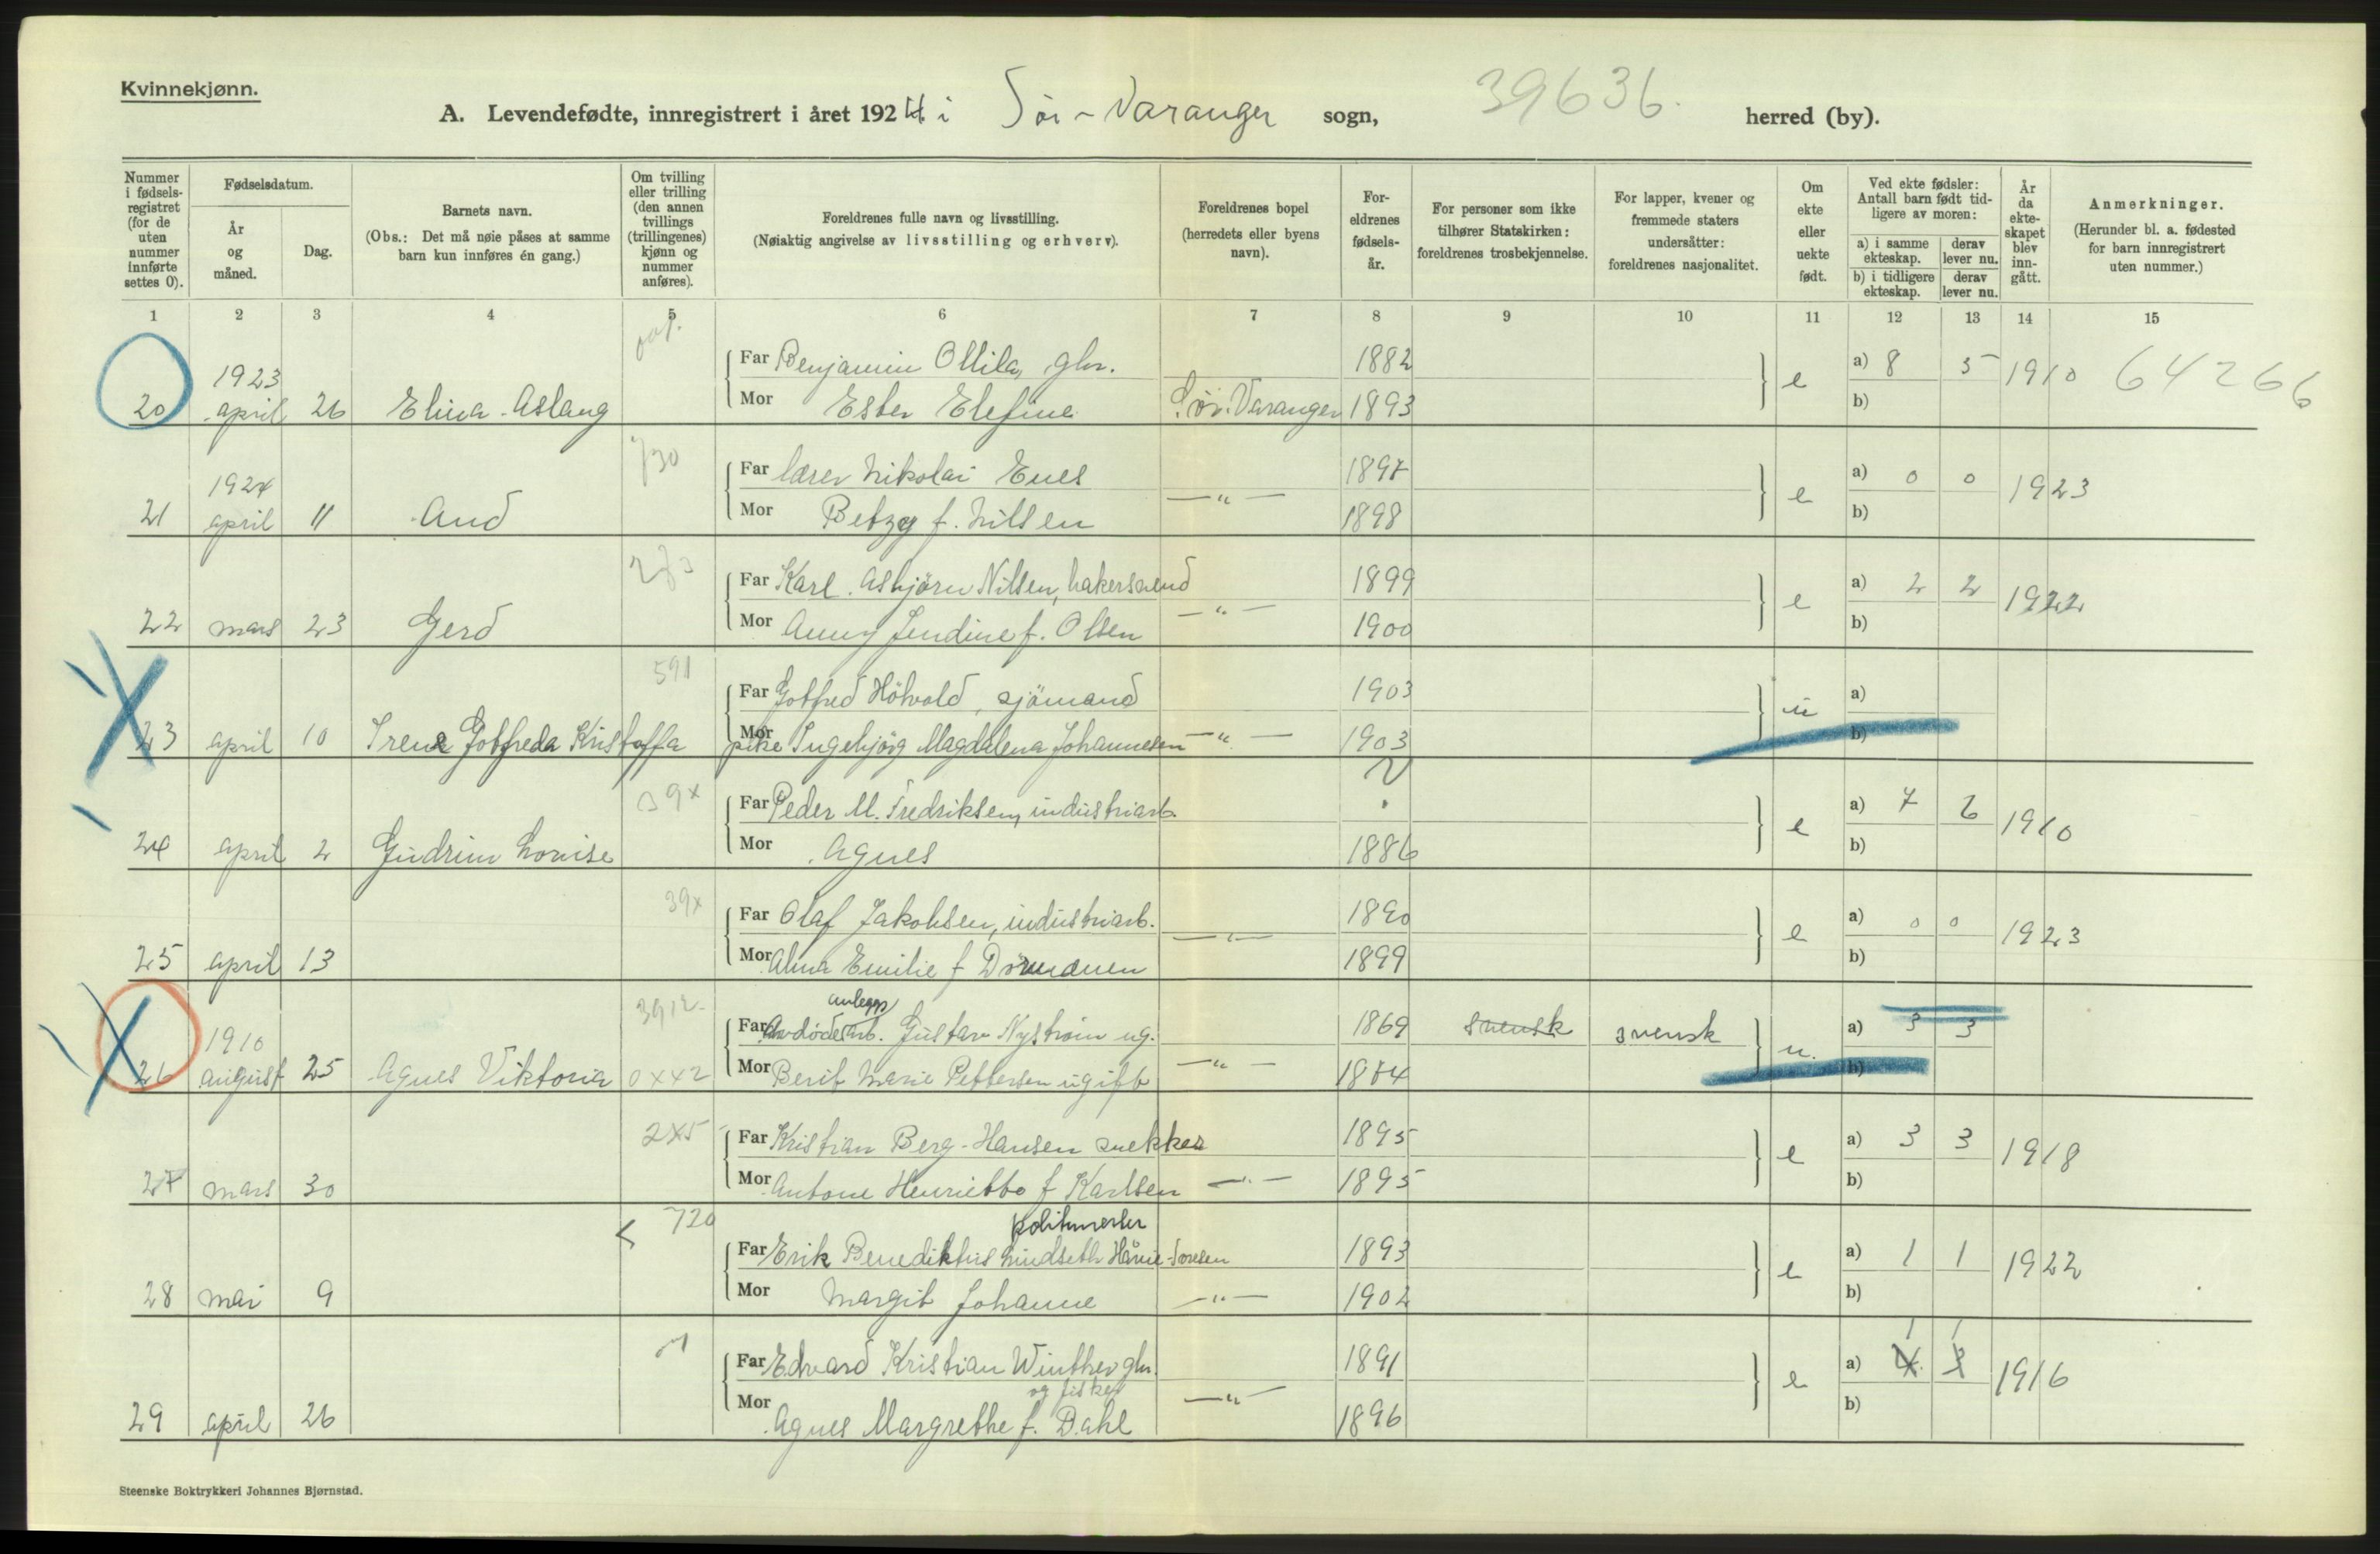 Kvinnekjønn.
A. Levendefødte, innregistrert i året 1924 i Sør-Varanger sogn, 39636. herred (by).
Nummer i fødselsregistret (for de uten nummer innførte settes 0).
Fødselsdatum.
År og måned.
Dag.
Barnets navn.
(Obs.: Det må nøie påses at samme barn kun innføres én gang.)
Om tvilling eller trilling (den annen tvillings (trillingenes) kjønn og nummer anføres).
Foreldrenes fulle navn og livsstilling.
(Nøiaktig angivelse av livsstilling og erhverv).
Foreldrenes bopel (herredets eller byens navn).
Foreldrenes fødselsår.
For personer som ikke tilhører Statskirken: foreldrenes trosbekjennelse.
For lapper, kvener og fremmede staters undersåtter: foreldrenes nasjonalitet.
Om ekte eller uekte født.
Ved ekte fødsler: Antall barn født tidligere av moren:
a) i samme ekteskap. derav lever nu.
b) i tidligere ekteskap. derav lever nu.
År da ekteskapet blev inngått.
Anmerkninger.
(Herunder bl. a. fødested for barn innregistrert uten nummer.)
1 2 3 4 5 6 7 8 9 10 11 12 13 14 15
Far Benjamin Ollila, gbr. 1882 e a) 8 5 1910 64266
20 1923 april 26 Elina Aslaug Mor Ester Elefine Sør-Varanger 1893 b)
730
Far lærer Nikolai Enes 1897 e a) 0 0 1923
21 1924 april 11 Aud Mor Betzy f. Nilsen —"— 1898 b)
Far Karl Asbjörn Nilsen, bakersvend 1899 e a) 2 2 1922
22 mars 23 Gerd Mor Anny Jendine f. Olsen —"— 1900 b)
591
Far Gotfred Hötvold, sjömand 1903 u a)
23 april 10 Irene Gotfreda Kristoffa Mor pike Ingebjörg Magdalena Johannesen —"— 1903 b)
39x
Far Peder M. Fredriksen, industriarb. e a) 7 6 1910
24 april 2 Gudrun Louise Mor Agnes 1886 b)
39x
Far Olaf Jakobsen, industriarb. 1890 e a) 0 0 1923
25 april 13 Mor Alma Emilie f —"— 1899 b)
3912 anlegg
Far Avdöde arb. Gustav Nyström ug. 1869 svensk svensk u. a) 3 3
26 1910 august 25 Agnes Viktoria 0x42 Mor Berit Marie Pettersen ugift —"— 1874 b)
2x5
Far Kristian Berg-Hansen snekker 1895 e a) 3 3 1918
27 mars 30 Mor Antone Henriette f Karlsen —"— 1895 b)
720 politimester
Far Erik Benediktus Lindseth 1893 e a) 1 1 1922
28 mai 9 Mor Margit Johanne —"— 1902 b)
Far Edvard Kristian Winther gbr. og fisker 1891 e a) 1 1 1916
29 april 26 Mor Agnes Margrethe f. Dahl —"— 1896 b)
Steenske Boktrykkeri Johannes Bjørnstad.